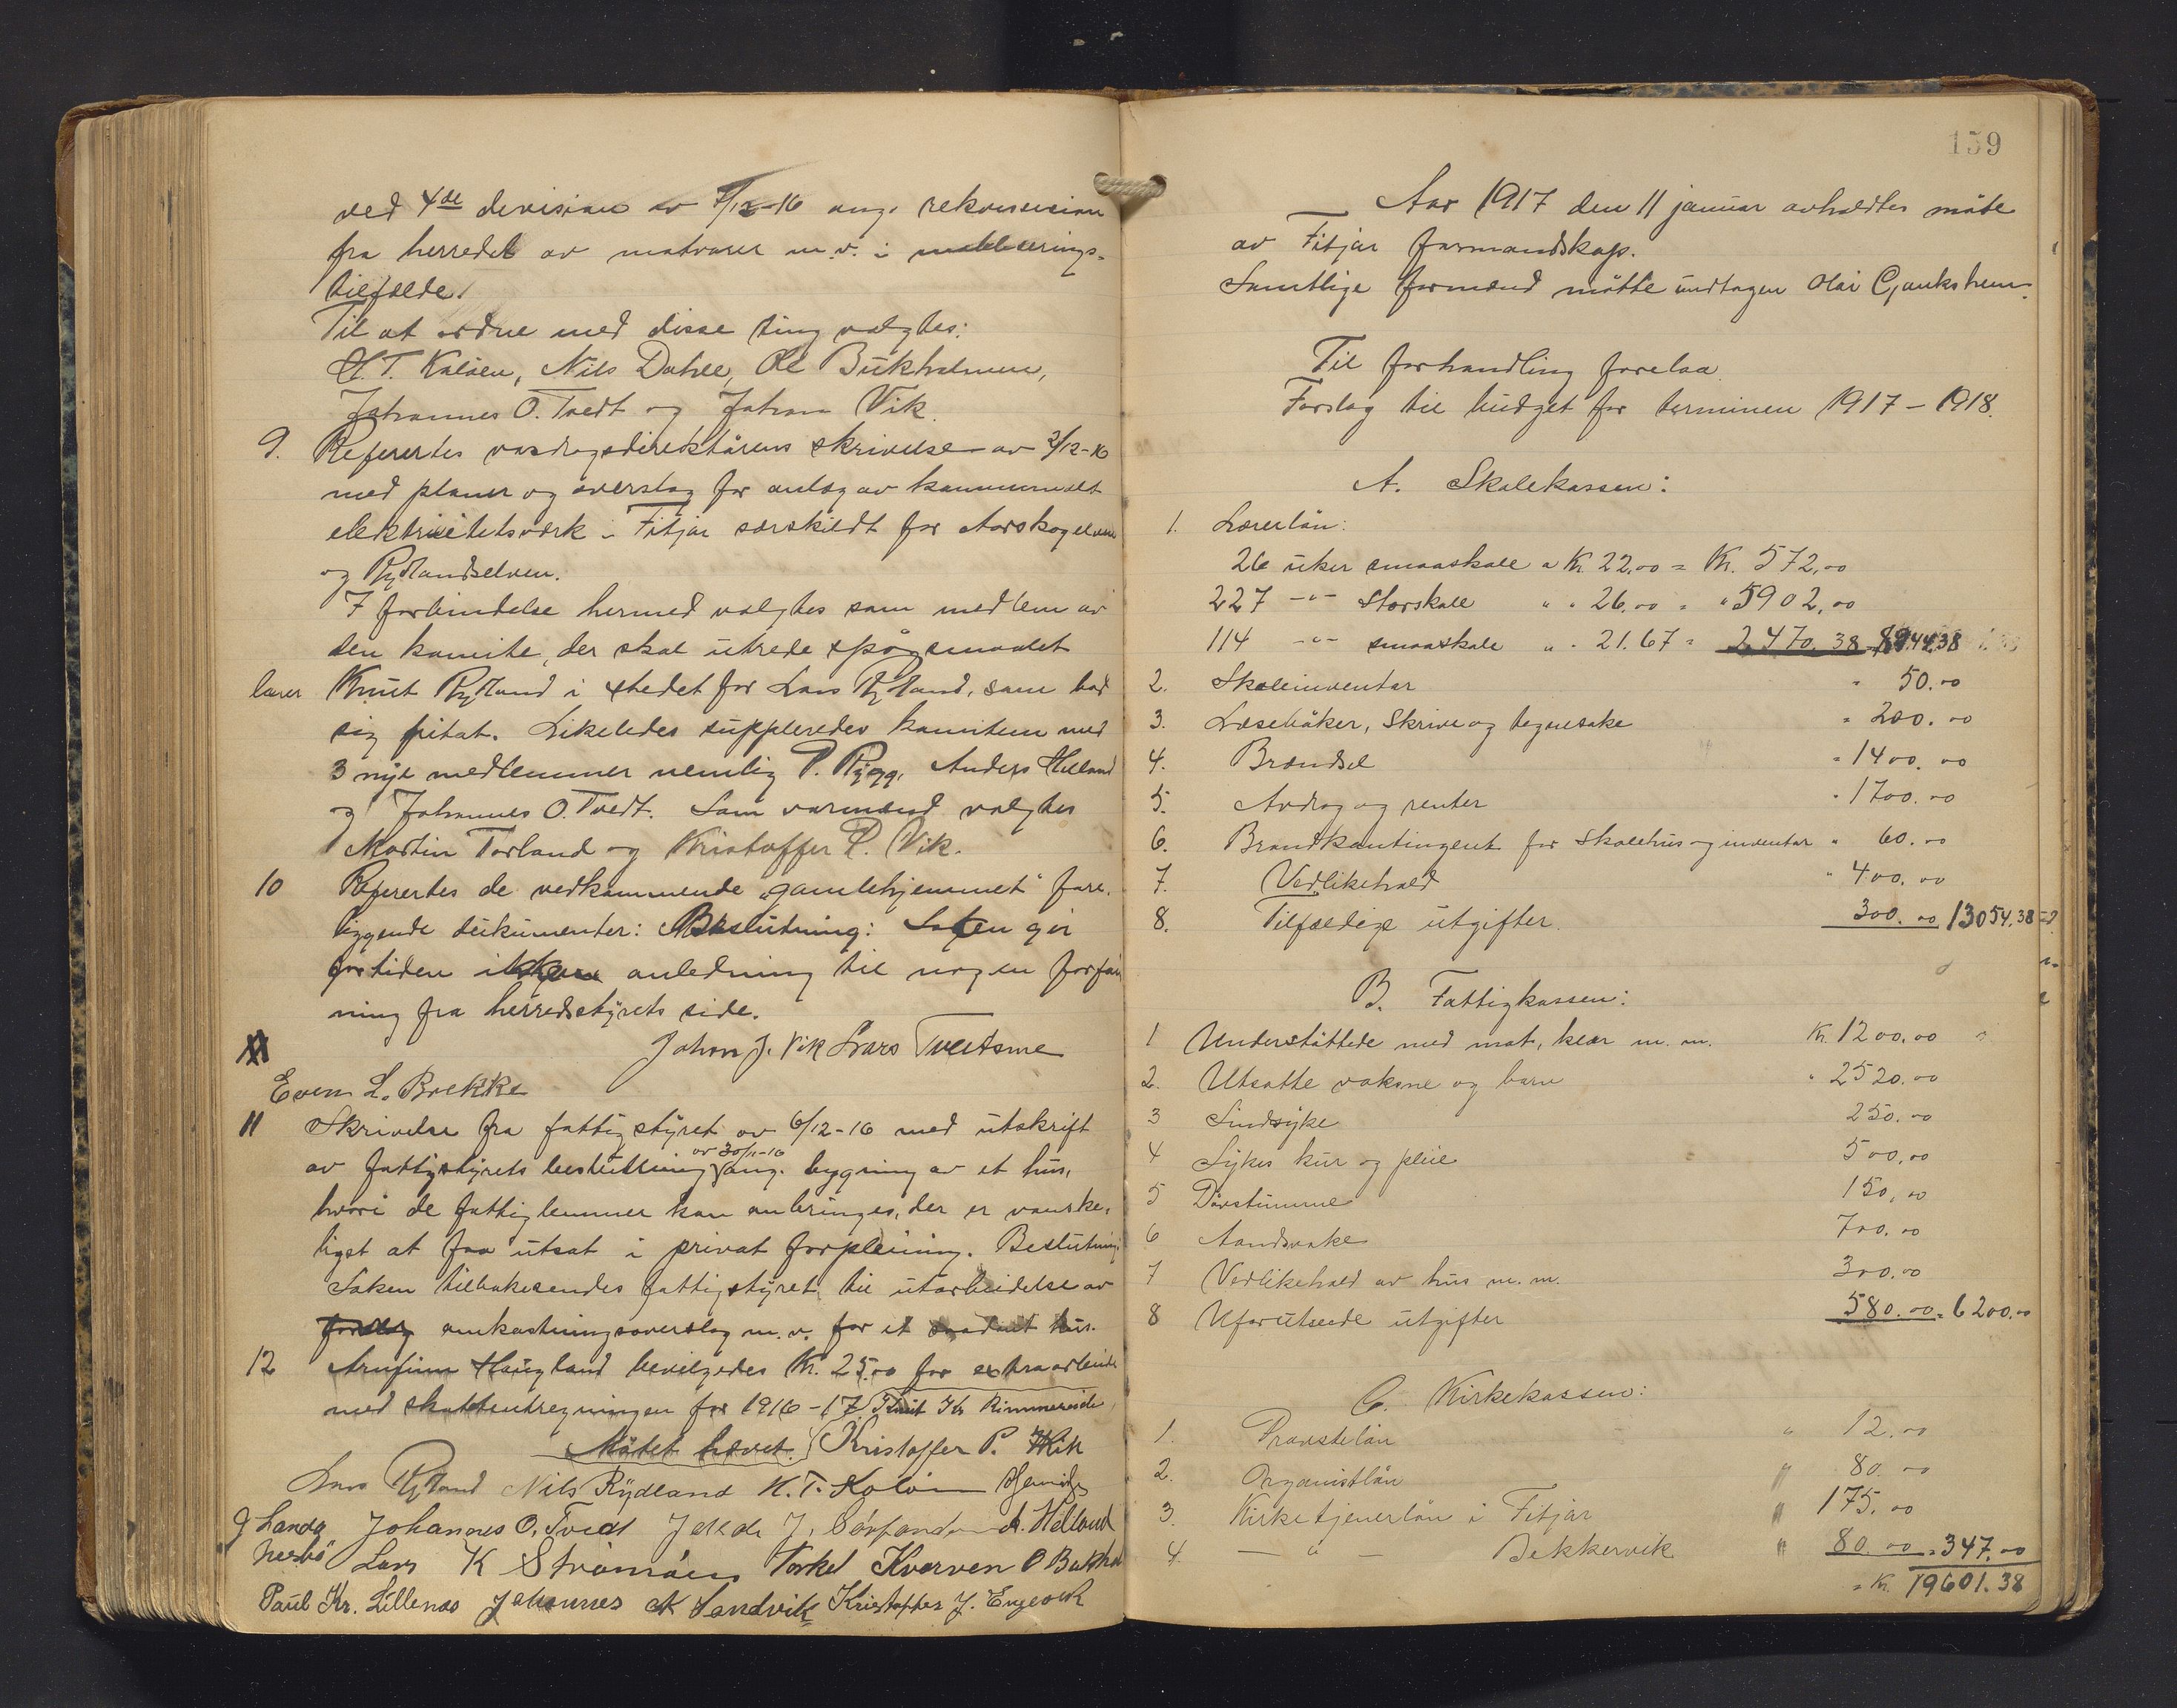 ved 4de division av 7/12-16 ang. rekvisision
fra herredet av matvarer m.v. i mobliserings-
tilfælde.
Til at ordne med disse ting valgtes:
H. T. Kaløen, Nils Dahle, Ole Bukholmen,
Johannes O. Tvedt og Johan Vik.
9. Refererles vasdragsdirektørens skrivelse av 2/12-16
med planer og overslag for anlæg av kommunalt
elektricitetsverk i Fitjar særskildt for Aarskogelven
og Rydlandselven.
I forbindelse hermed valgtes som medlem av
den komite, der skal utrede spøgsmaalet
lærer Knut Rydland i stedet for Lars Rydland, som bad
sig fritat. Likeledes suppleredes komiteen med
3 nye medlemmer nemlig P. Rygg, Anders Helland
og Johannes O. Tvedt. Som varmænd valgtes
Martin Torland og Kristoffer P. Vik.
10 Refererles de vedkommende "gamlehjemmet" fore-
liggende dokumenter: Beslutning: Saken gir
for tiden ikke anledning til nogen forføi-
ning fra herredsstyrets side.
Johan J. Vik Lars Tveitsme
Even L. Brekke
11 Skrivelse fra fattigstyret av 6/12-16 med utskrift
av 30/11-16
av fattigstyrets beslutning ang. bygning av et hus,
hvori de fattiglemmer kan anbringes, der er vanske-
liget at faa utsat i privat forpleining. Beslutning:
Saken tilbakesendes fattigstyret til utarbeidelse av
forslag omkostningsoverslag m.v. for et saadant hus.
12 Arnfinn Haugland bevilgedes Kr. 25.00 for extraarbeide
med skatteutregningen for 1916-17. Knut Kr Rimmereide
Møtet hævet. Kristoffer P. Vik
Lars Rydland Nils Rydland H. T. Kaløen
J Landa Johannes O. Tvedt Jakob J. Sørfonden A. Helland
Nesbø Lars K Strømøen Torkel Kverven O Bukhol
Paul Kr. Lillenæs Johannes K Sandvik Kristoffer J. Engevik
159
Aar 1917 den 11 januar avholdtes møte
av Fitjar formandskap.
Samtlige formænd møtte undtagen Olai Gjerikshem.
Til forhandling forelaa
Forslag til budget for terminen 1917-1918.
A. Skolekassen:
1. Lærerløn:
26 uker smaaskole a Kr. 22.00 = Kr. 572,00
227 -"- Storskole " " 26.00 = " 5902,00
114 -"- smaaskole " " 21.67 = 2470.38 = 8944.38
2. Skoleinventar " 50.00
3. Læsebøker, Skrive og tegnesake " 200.00
4. Brændsel " 1400.00
5. Avdrag og renter " 1700.00
6. Brandkontingent for Skolehus og inventar " 60.00
7. Vedlikehold " 400.00
8. Tilfældige utgifter 300.00 13054.38
B. Fattigkassen:
1 Understøttede med mat, klær m. m. Kr. 1200.00
2. Utsatte voksne og barn " 2520.00
3 Sindsyke 250.00
4 Sykes kur og pleie 500.00
5 Døvstumme 150.00
6 Aandsvake 700.00
7 Vedlikehold av hus m. m. 300.00
8 Uforutseede utgifter 580.00 = 6200.00
C. Kirkekassen:
1. Provsteløn " 12.00
2. Organistløn " 80.00
3. Kirketjenerløn i Fitjar " 175.00
4. - " - Bekkervik " 80.00 = 347.00
= Kr. 19601.38